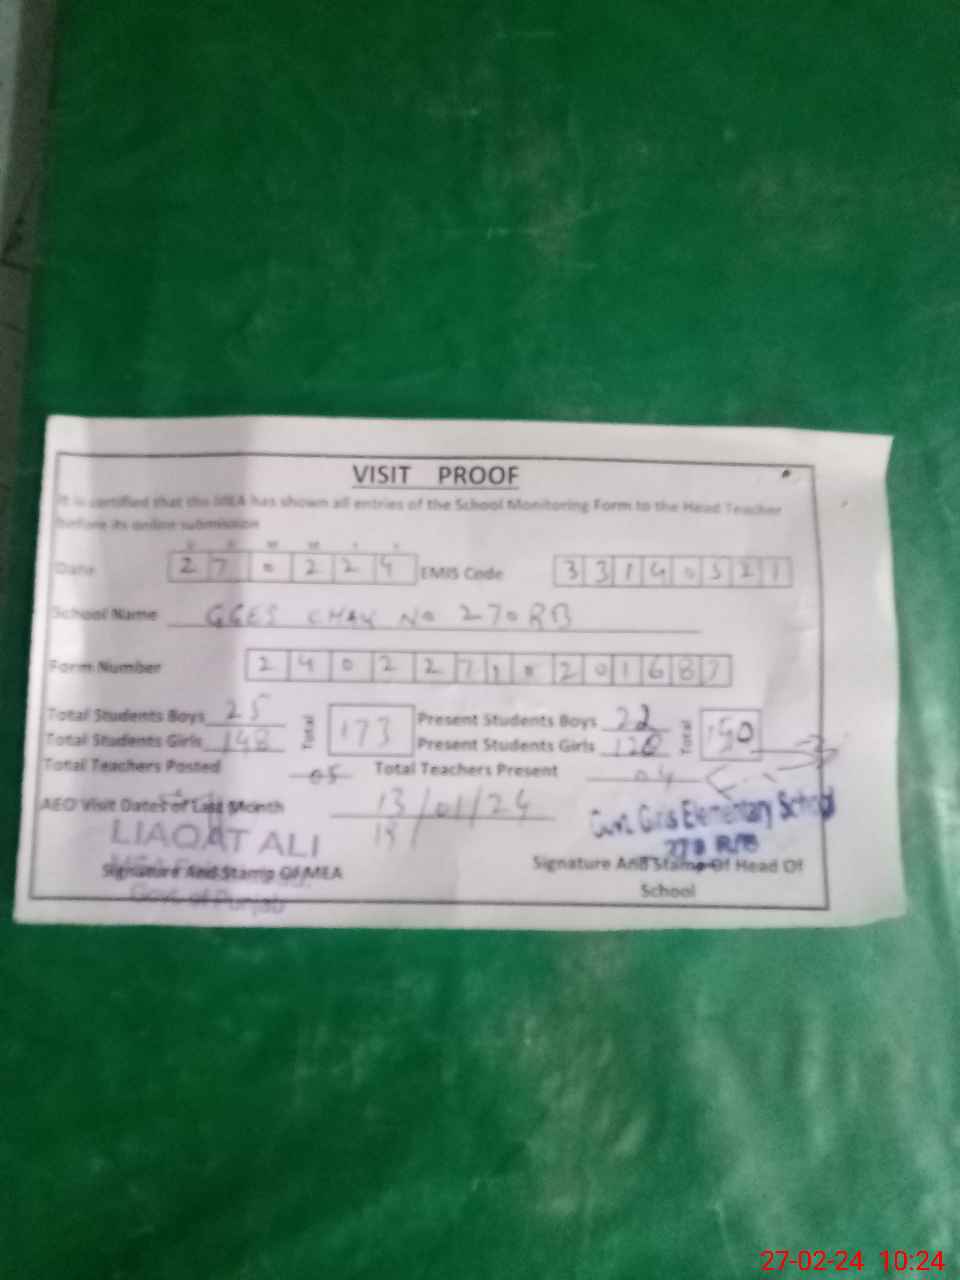 VISIT PROOF
It is certified that the MEA has shown all entries of the School Monitoring Form to the Head Teacher
before its online submission
Date 2 7 0 2 2 4 EMIS Code 3 3 1 4 0 3 2 1
School Name GGES CHAK NO 270 RB
Form Number 2 4 0 2 2 7 1 0 2 0 1 6 8 7
Total Students Boys 25 Total 173 Present Students Boys 22 Total 150
Total Students Girls 148 Present Students Girls 128
Total Teachers Posted 05 Total Teachers Present 04
AEO Visit Dates of Last Month 13/01/24
Govt. Girls Elementary School
LIAQAT ALI
270 R/B
Signature And Stamp Of MEA
Signature And Stamp Of Head Of
School
Govt. of Punjab
27-02-24 10:24